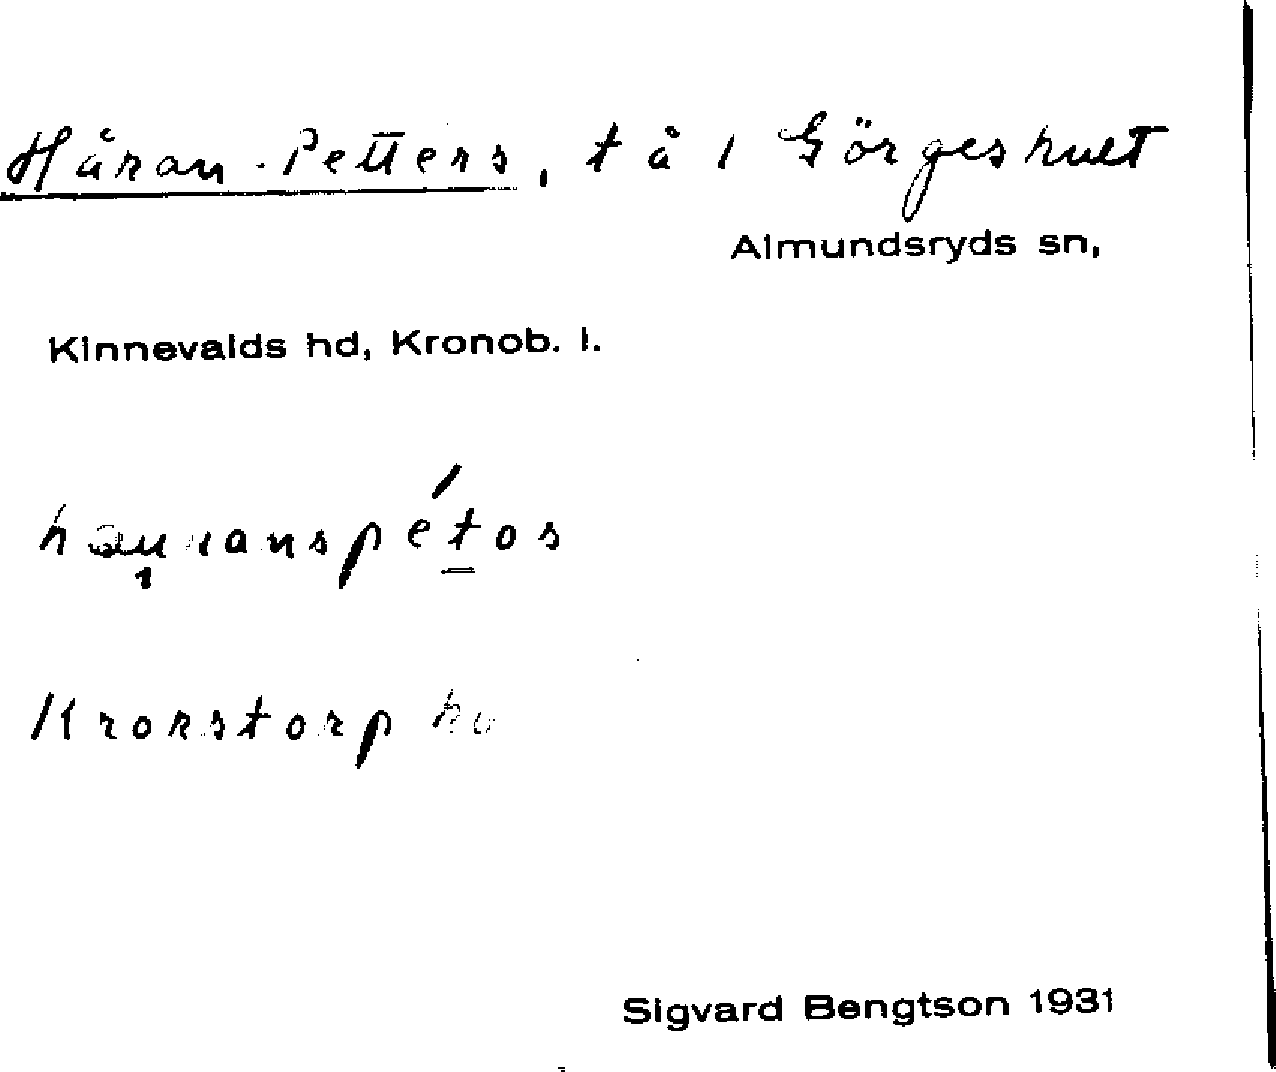 Håkan-Petters, tå i Görgeshult
Almundsryds sn,
Kinnevalds hd, Kronob. l.
Krokstorp
Sigvard Bengtson 1931